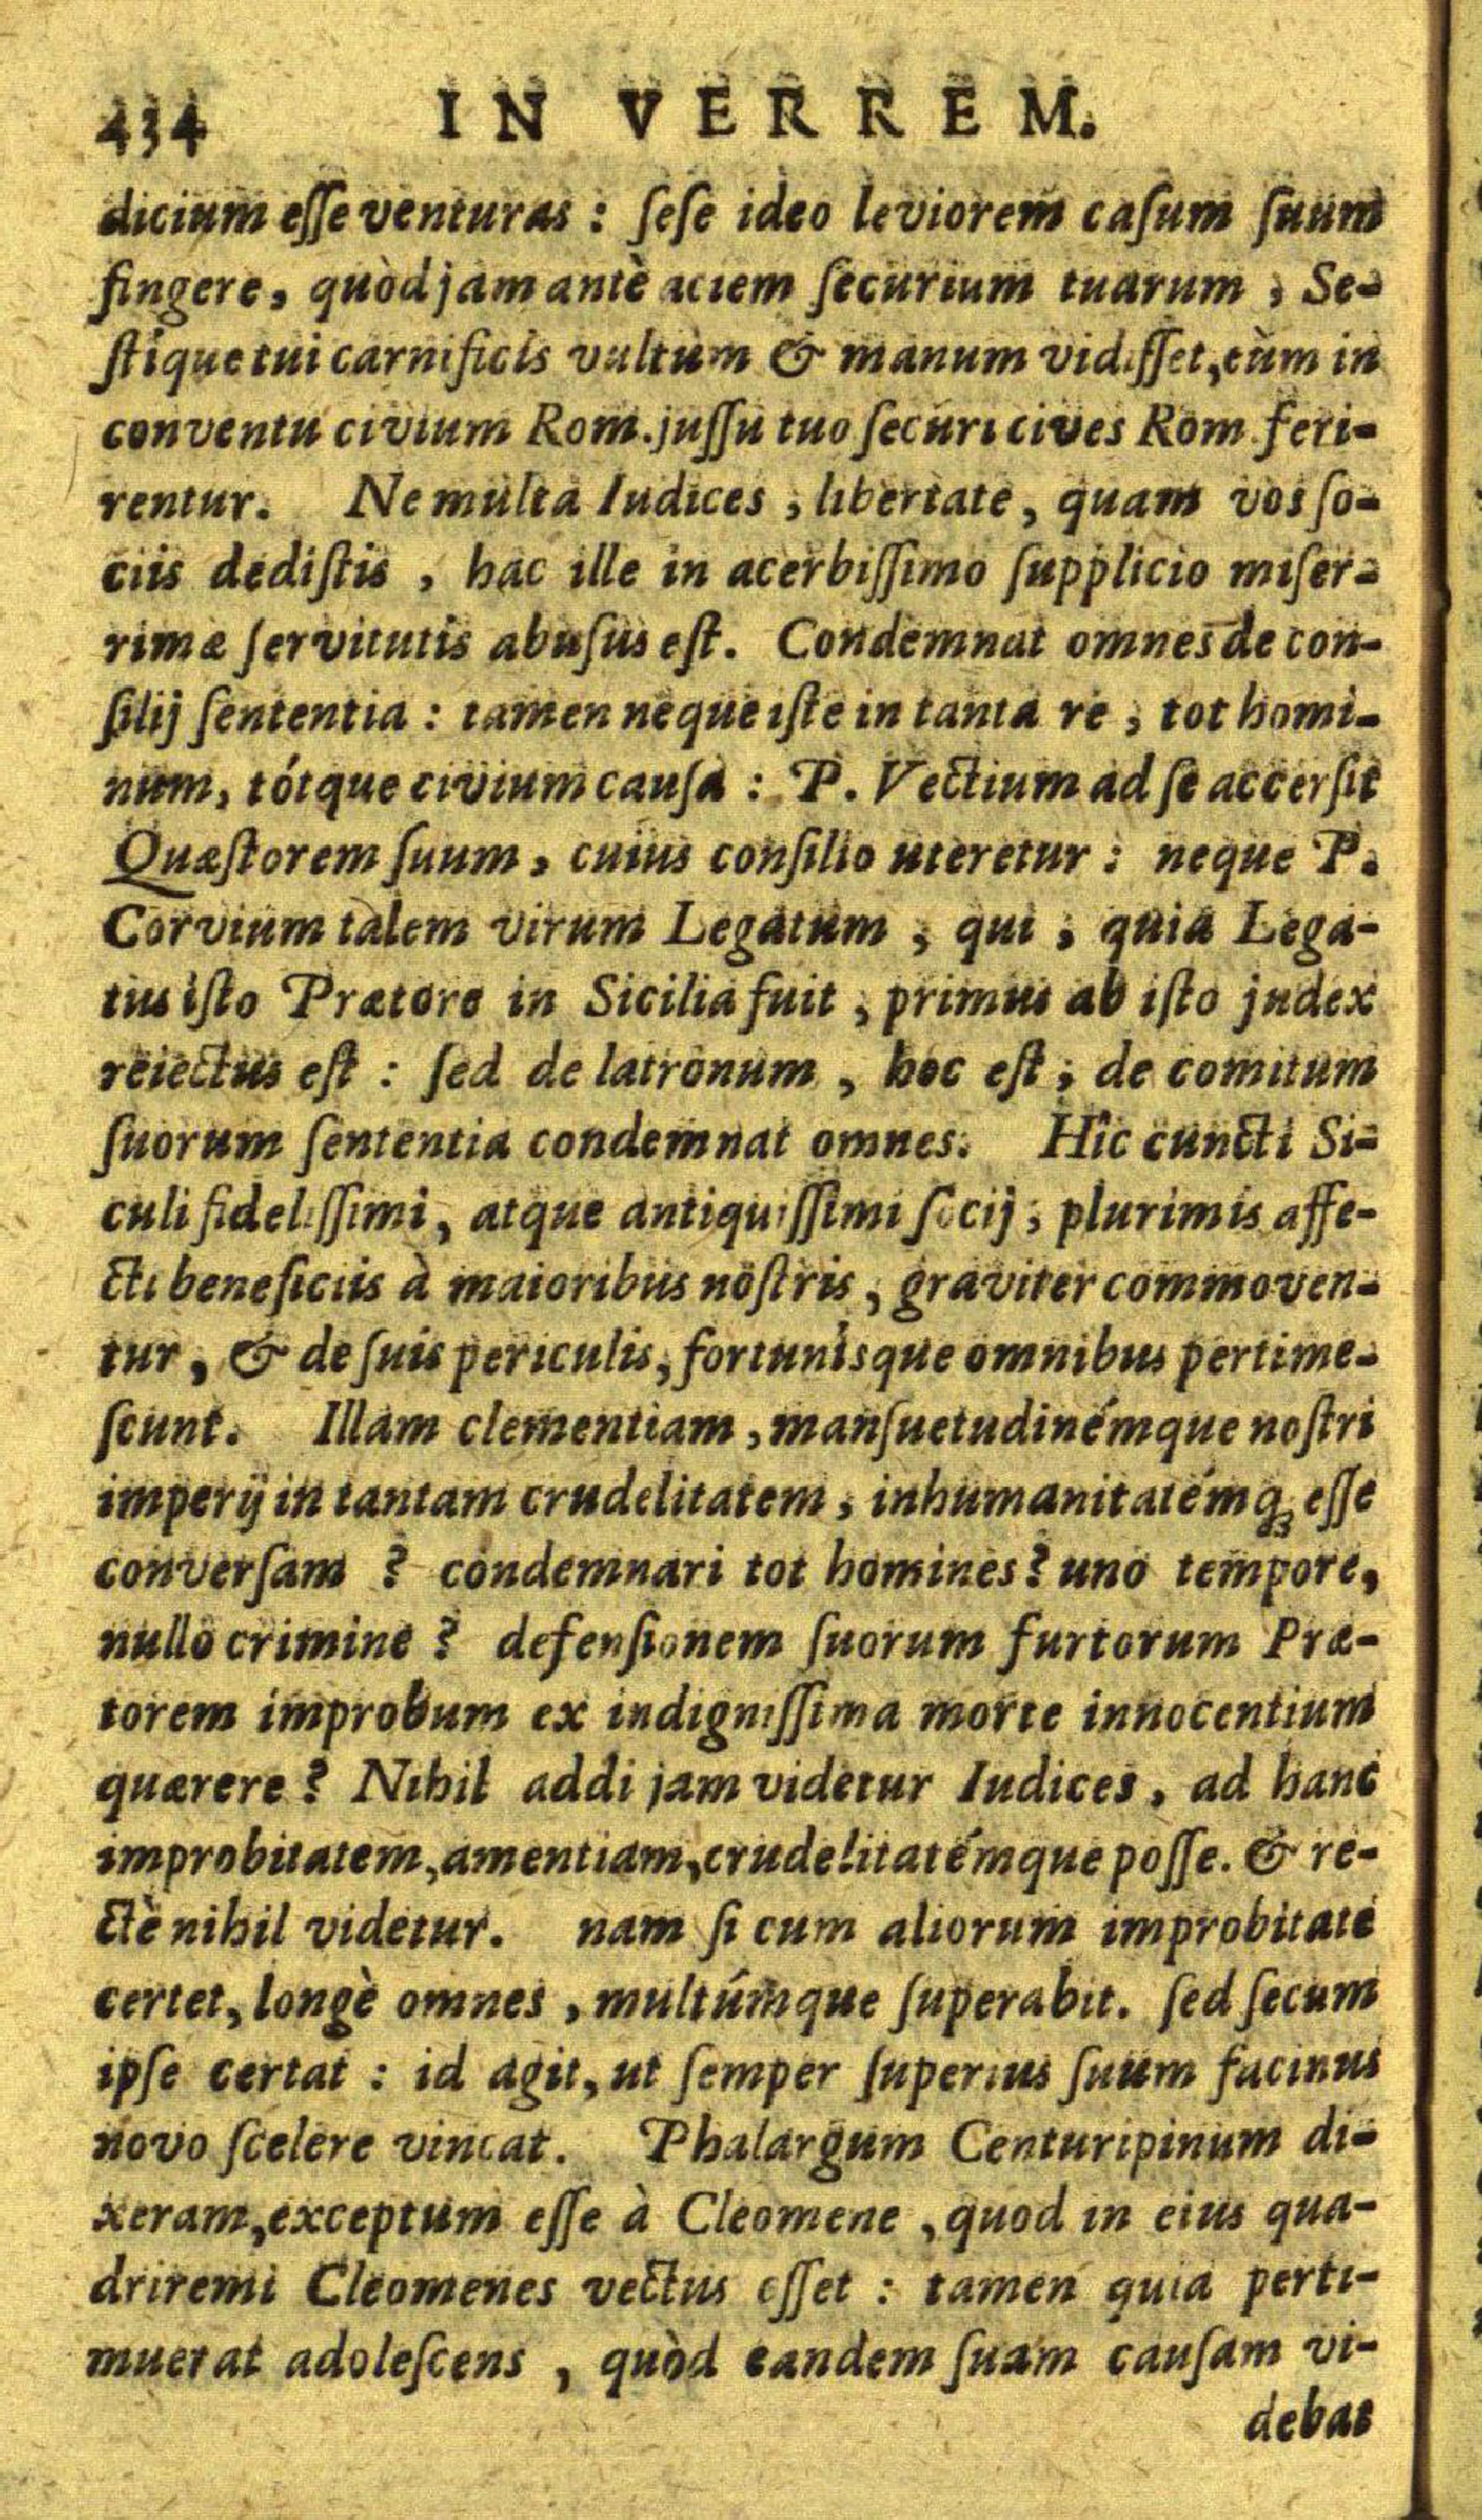 434 IN VERREM.
dicium eſſe venturas : ſeſe ideo leviorem caſum ſuum
fingere, quòd jam antè aciem ſecurium tuarum, Se-
ſtique tui carnificis vultum & manum vidiſſet, cùm in
conventu civium Rom. juſſu tuo ſecuri cives Rom. feri-
rentur. Ne multa Iudices, libertate, quam vos ſo-
ciis dediſtis, hac ille in acerbiſſimo ſupplicio miſer-
rimæ ſervitutis abuſus eſt. Condemnat omnes de con-
ſilij ſententia : tamen neque iſte in tanta re, tot homi-
num, tótque civium cauſa : P. Vectium ad ſe accerſit
Quæſtorem ſuum, cuius conſilio uteretur : neque P.
Corvium talem virum Legatum, qui, quia Lega-
tus iſto Prætore in Sicilia fuit, primus ab iſto judex
reiectus eſt : ſed de latronum, hoc eſt, de comitum
ſuorum ſententia condemnat omnes. Hîc cuncti Si-
culi fideliſſimi, atque antiquiſſimi ſocij, plurimis affe-
cti beneficiis à maioribus noſtris, graviter commoven-
tur, & de ſuis periculis, fortunisque omnibus pertime-
ſcunt. Illam clementiam, manſuetudinémque noſtri
imperij in tantam crudelitatem, inhumanitatémq; eſſe
converſam ? condemnari tot homines ? uno tempore,
nullo crimine ? defenſionem ſuorum furtorum Præ-
torem improbum ex indigniſſima morte innocentium
quærere ? Nihil addi jam videtur Iudices, ad hanc
improbitatem, amentiam, crudelitatémque poſſe. & re-
ctè nihil videtur. nam ſi cum aliorum improbitate
certet, longè omnes, multúmque ſuperabit. ſed ſecum
ipſe certat : id agit, ut ſemper ſuperius ſuum facinus
novo ſcelere vincat. Phalargum Centuripinum di-
xeram, exceptum eſſe à Cleomene, quod in eius qua-
driremi Cleomenes vectus eſſet : tamen quia perti-
muerat adoleſcens, quòd eandem ſuam cauſam vi-
debat